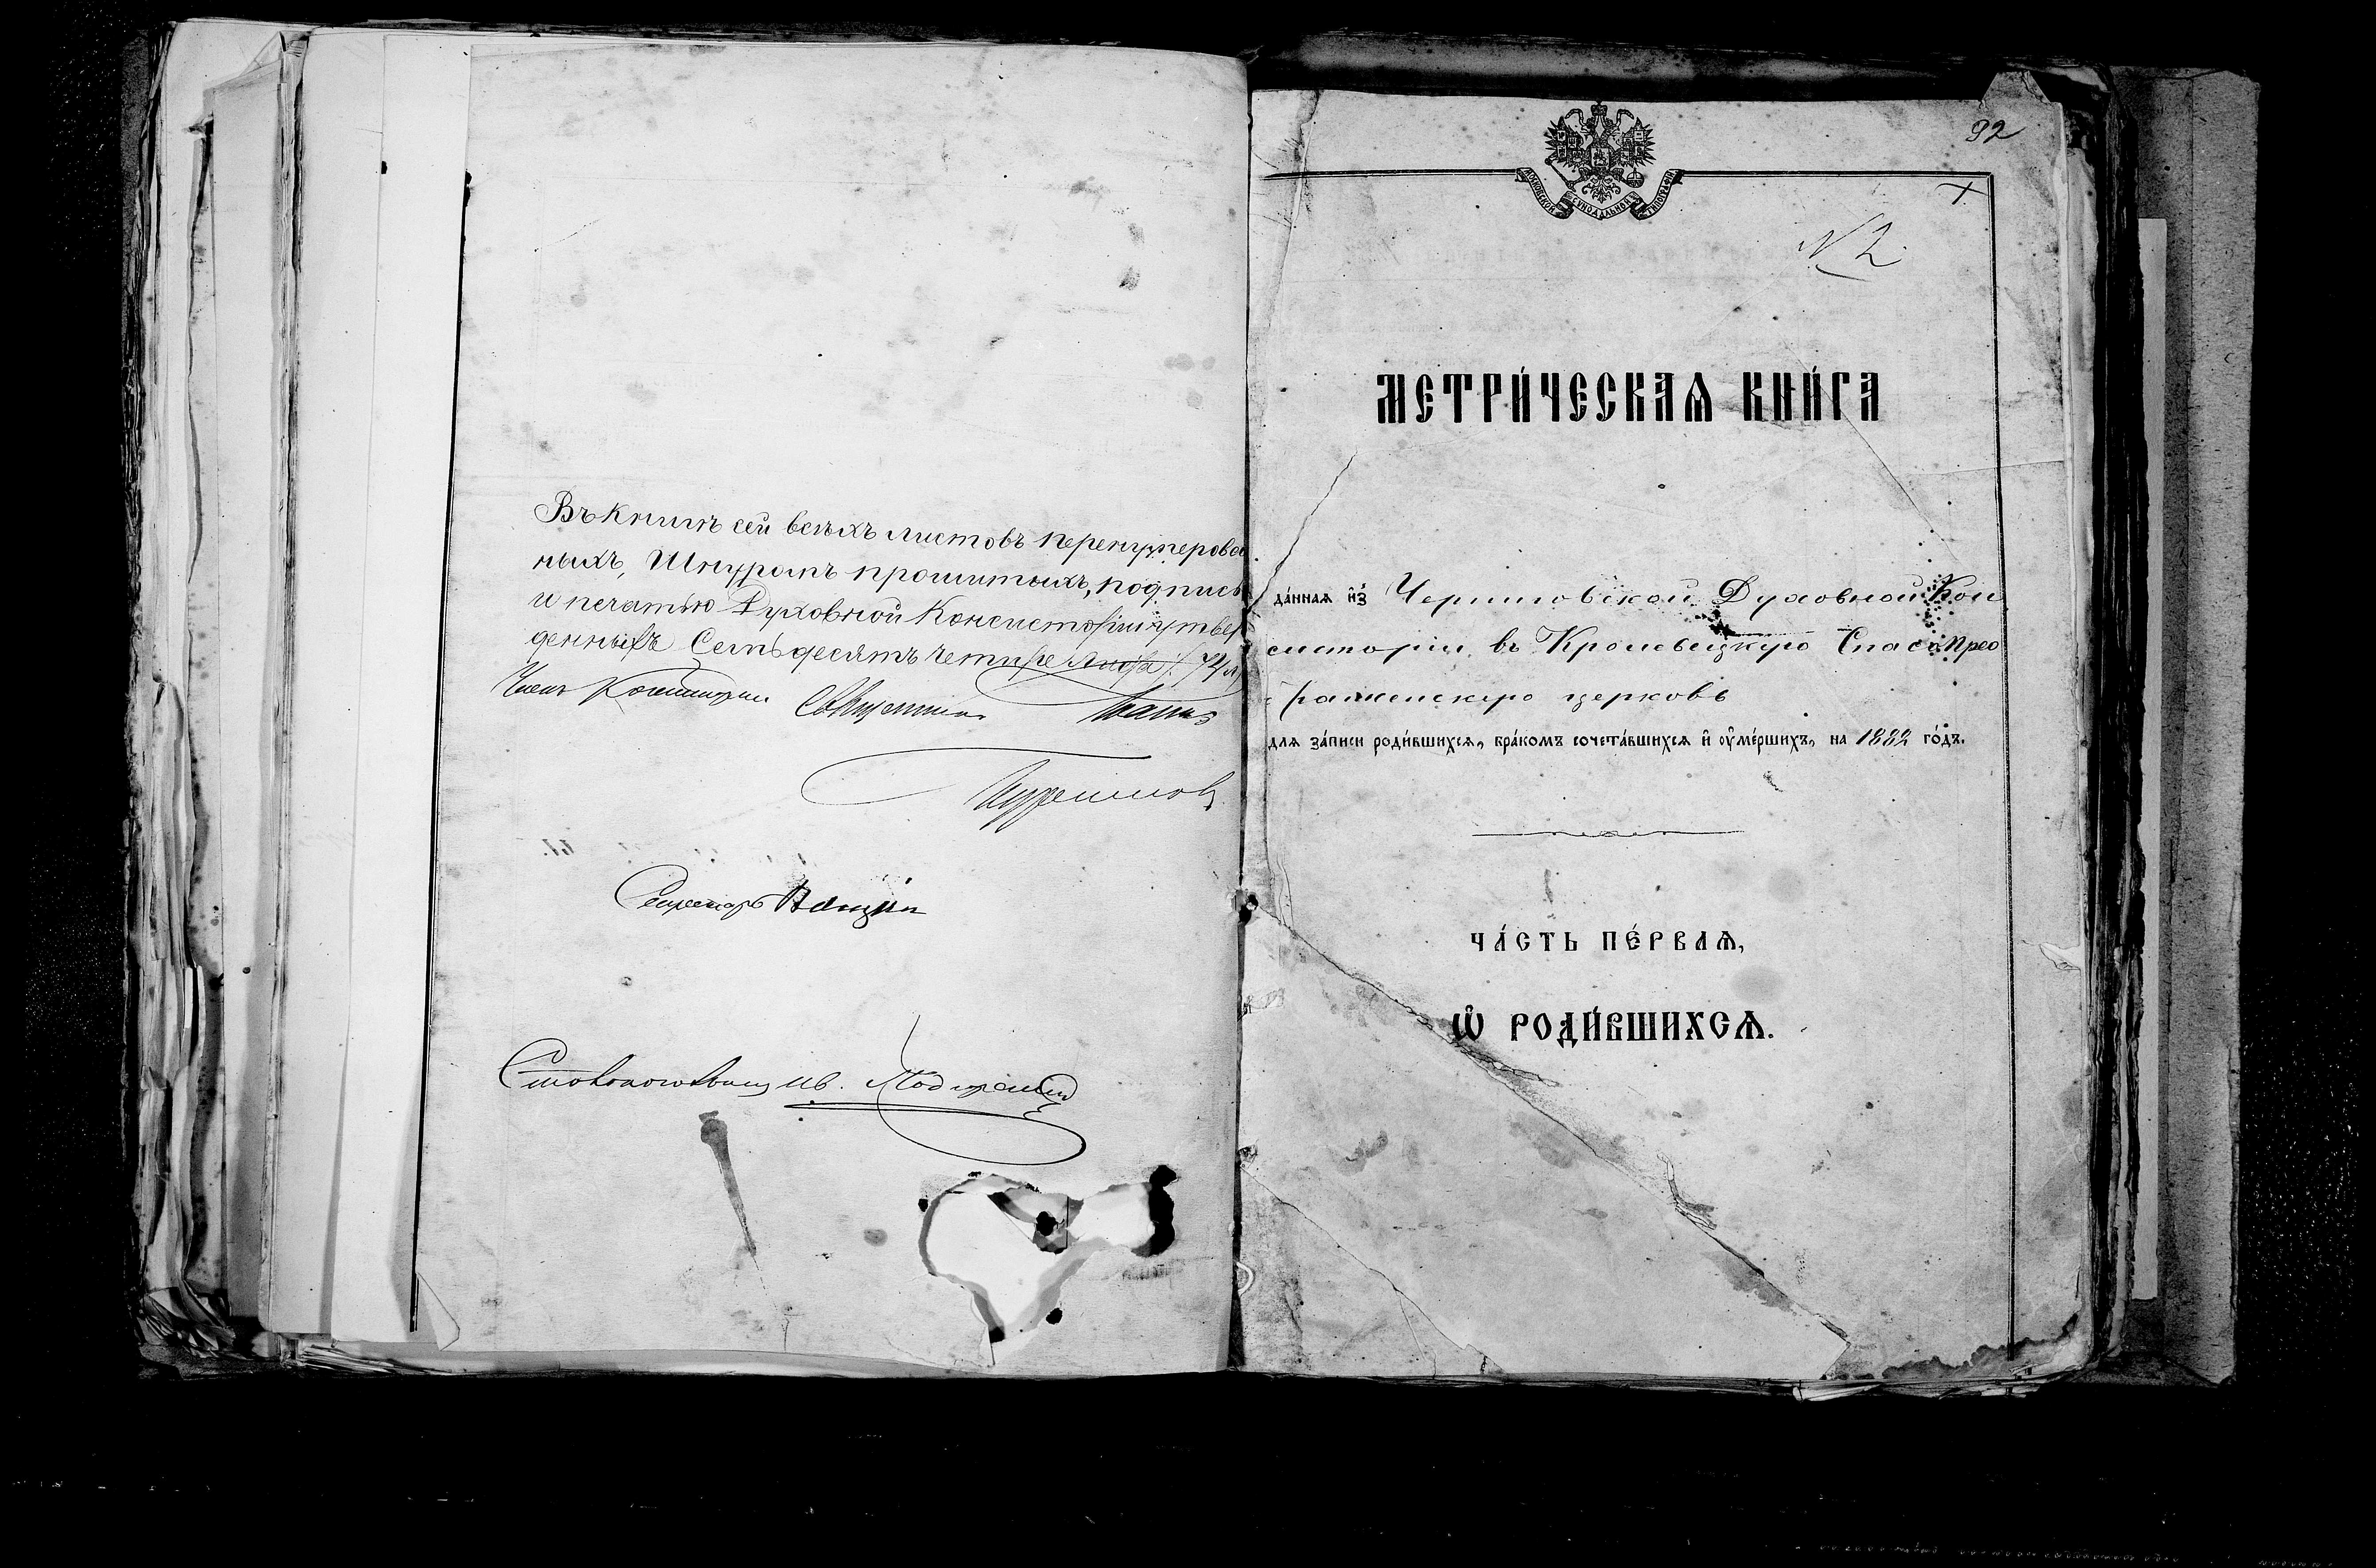 Въ книгѣ сей всѣхъ листовъ перенумерован
ныхъ, Шнуромъ прошитыхъ, подписью
и печатью Духовной Консисторіи утверж
денныхъ Семьдесятъ четыре листа /74 л/
Членъ Консисторіи Священникъ Іоаннъ
Секретарь
Столоначальникъ Ив.
92
МОСКОВСКОЙ СѴНОДАЛЬНОЙ ТИПОГРАФІИ
N 2
МЕТРИ́ЧЕСКАѦ КНИ́ГА
да́нная и҆з̾ Черниговской Духовной Кон
систоріи въ Кролевецкую Спасо-Прео
браженскую церковь
для за́писи роди́вшихся, бра́комъ сочета́вшихся и҆ ᲂу҆ме́ршихъ, на 1882 го́дъ.
ЧА́СТЬ ПЕ́РВАѦ,
Ѽ РОДИ́ВШИХСѦ.